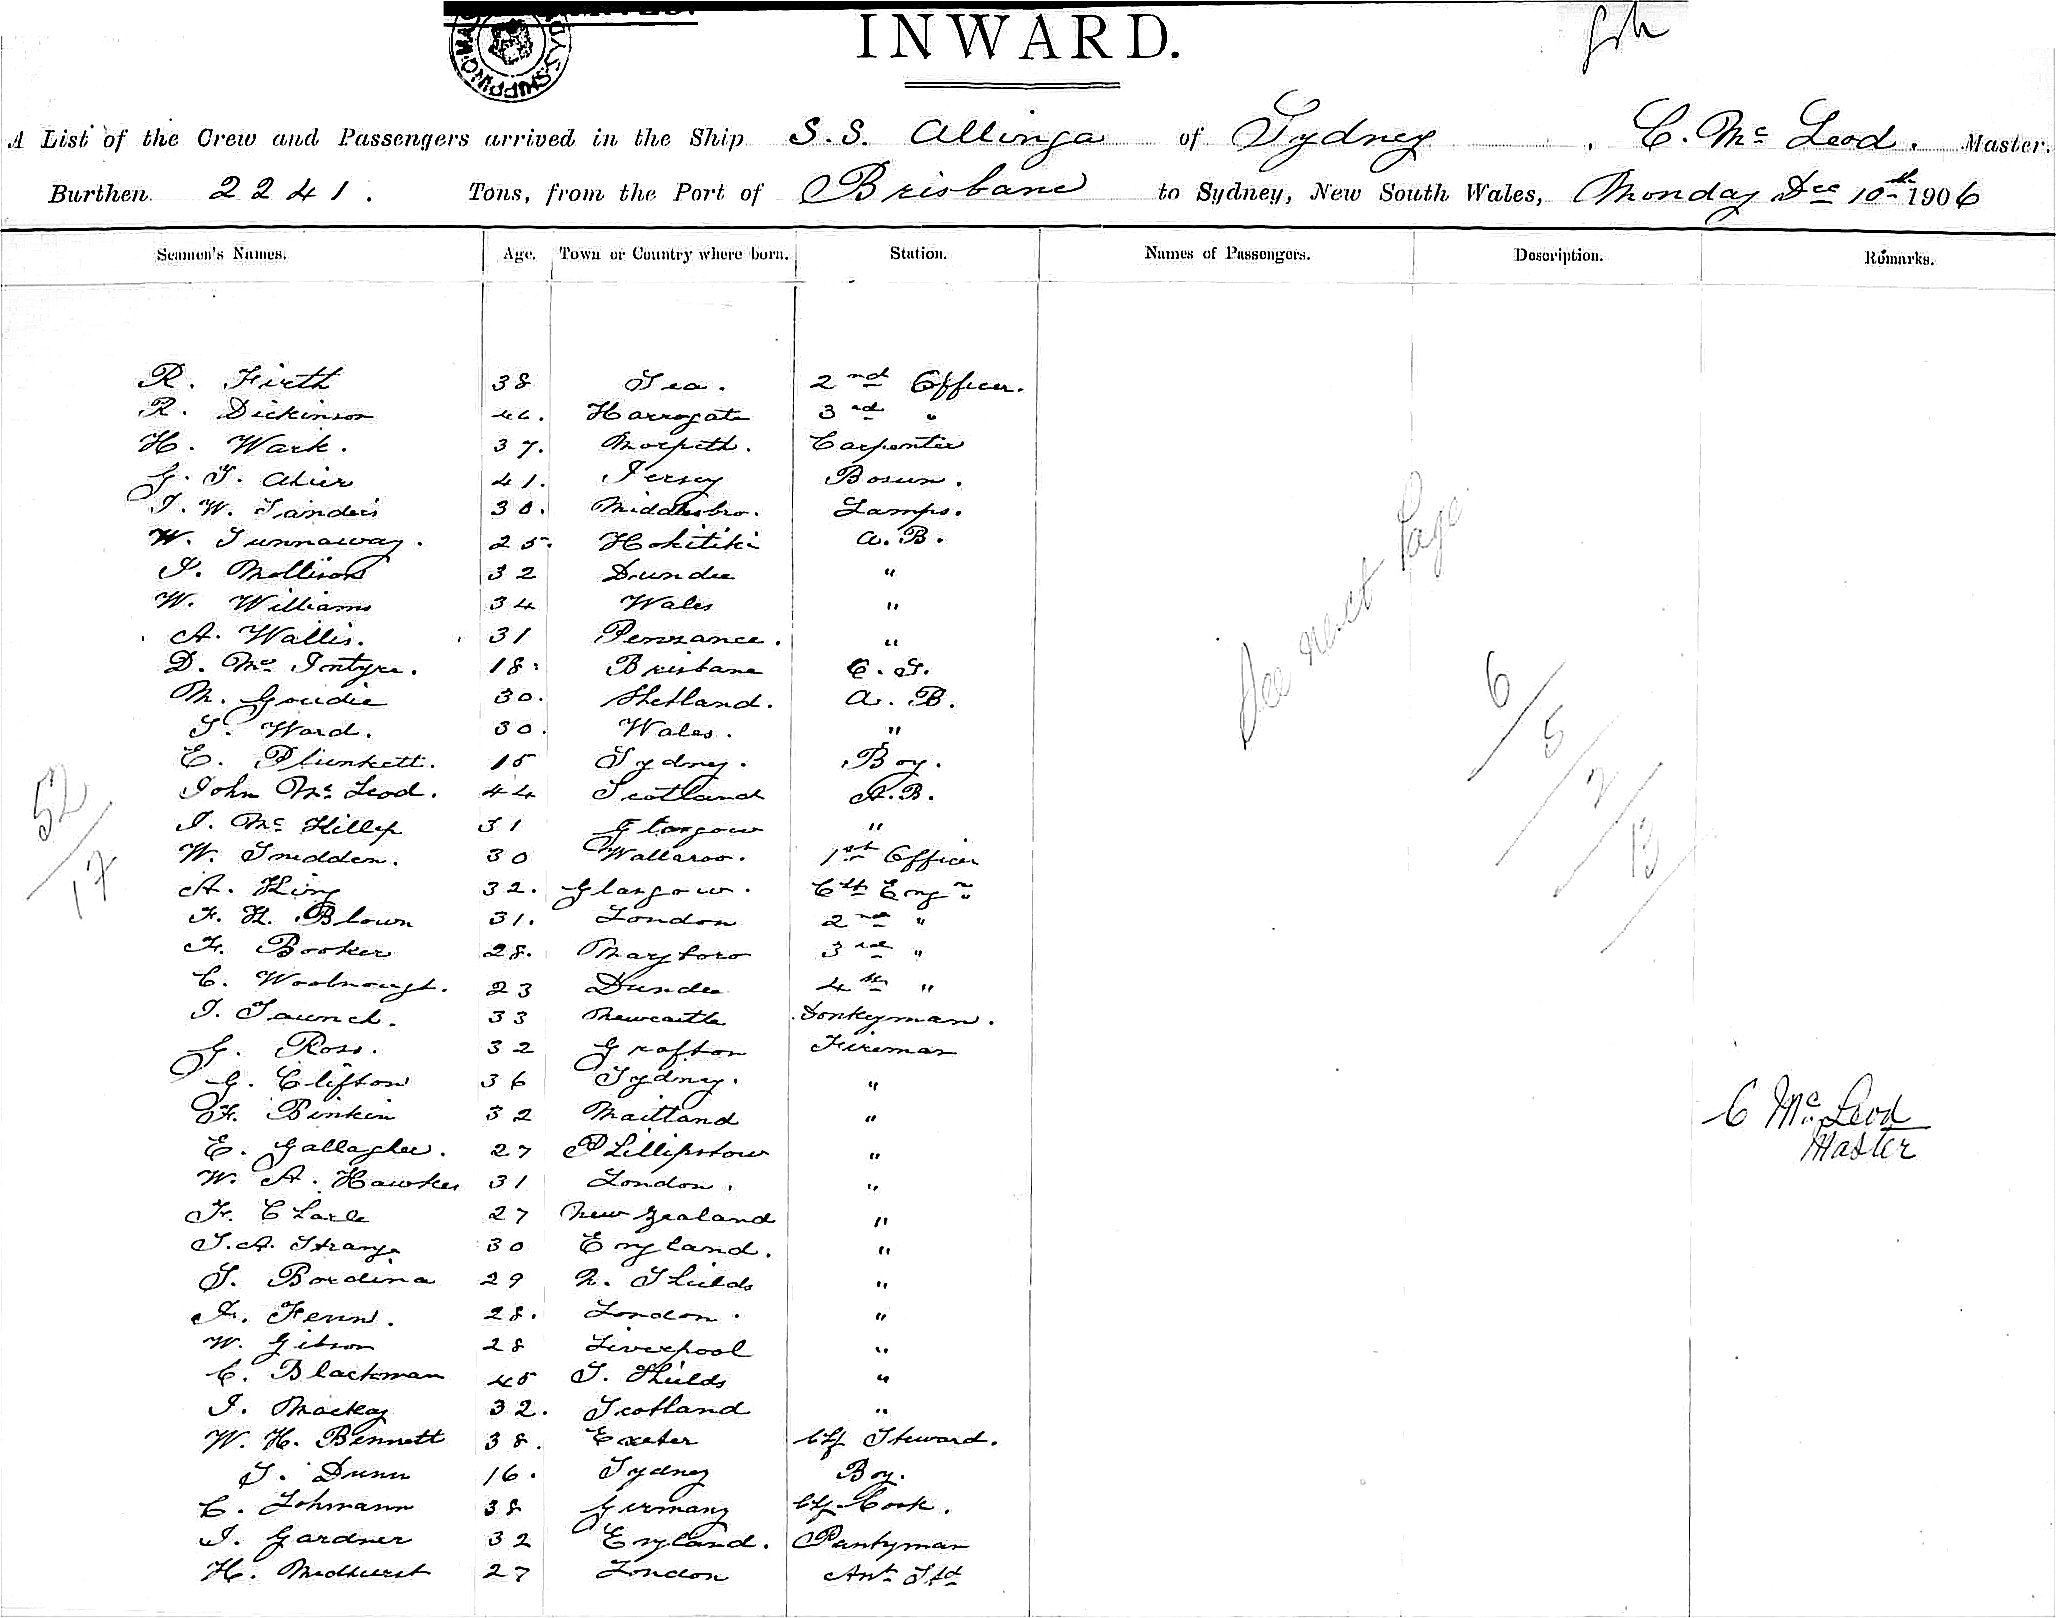 INWARD.
A List of the Crew and Passengers arrived in the Ship S.S. Allinga of Sydney, C. Mc Leod. Master.
Burthen 2241. Tons, from the Port of Brisbane to Sydney, New South Wales, Monday Dec 10th 1906
Seamen's Names. Age. Town or Country where born. Station. Names of Passengers. Description. Remarks.
R. Firth 38 Sea. 2nd Officer.
R. Dickinson Harrogate 3rd "
H. Wark. 37. Morpeth. Carpenter
G. T. Ahier 41. Jersey Bosun.
J. W. Sanders 30. Middlesbro. Lamps.
W. Tunnaway. 25. Hokitiki A. B.
J. Mollison 32 Dundee "
W. Williams 34 Wales "
A. Wallis. 31 Penzance. "
D. Mc Intyre. 18. Brisbane
M. Goudie 30. Shetland. A. B.
Ward. 30. Wales. "
E. Plunkett. 15 Sydney. Boy.
John Mc Leod. 44 Scotland A.B.
J. Mc Killop 31 Glasgow "
W. Snedden. 30 Wallaroo. 1st Officer
A. King 32. Glasgow. Engr
F. H. Blown 31. London 2nd "
F. Booker 28. Maryboro 3rd "
C. Woolnough. 23 Dundee 4th "
J. Taunch. 33 Newcastle Donkeyman.
G. Ross. 32 Grafton Fireman
G. Clifton 36 Sydney. "
F. Binkin 32 Maitland "
E. Gallagher. 27 Phillipstown "
W. A. Hawkes 31 London. "
F. Clarle 27 New Zealand "
J. A. Strange 30 England. "
S. Bordina 29 N. Shields "
F. Fenn. 28. London. "
W. Gibson 28 Liverpool "
C. Blackman 45 S. Shields "
J. Mackay 32. Scotland "
W. H. Bennett 38. Exeter Chf Steward.
Dunn 16. Sydney Boy.
C. Lohmann 38 Germany Chf Cook.
J. Gardner 32 England. Pantryman
H. Medhurst 27 London
See next Page
6/5/2/13
52/17
C McLeod
Master